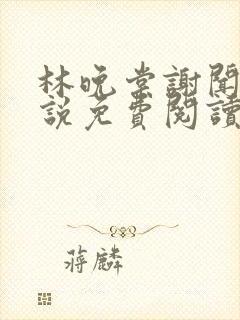 林晚棠謝聞
說免費閱讀
蔣麟